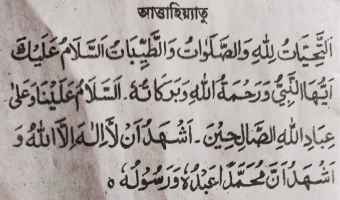 আত্তাহিয়্যাতু
اَلتَّحِيَّاتُ لِلّٰهِ وَالصَّلَوَاتُ وَالطَّيِّبَاتُ اَلسَّلَامُ عَلَيْكَ
اَيُّهَا النَّبِيُّ وَرَحْمَةُ اللهِ وَبَرَكَاتُهٗ. اَلسَّلَامُ عَلَيْنَا وَعَلٰى
عِبَادِ اللهِ الصَّالِحِيْنَ - اَشْهَدُ اَنْ لَّا اِلٰهَ اِلَّا اللهُ وَ
اَشْهَدُ اَنَّ مُحَمَّدًا عَبْدُهٗ وَرَسُوْلُهٗ ه